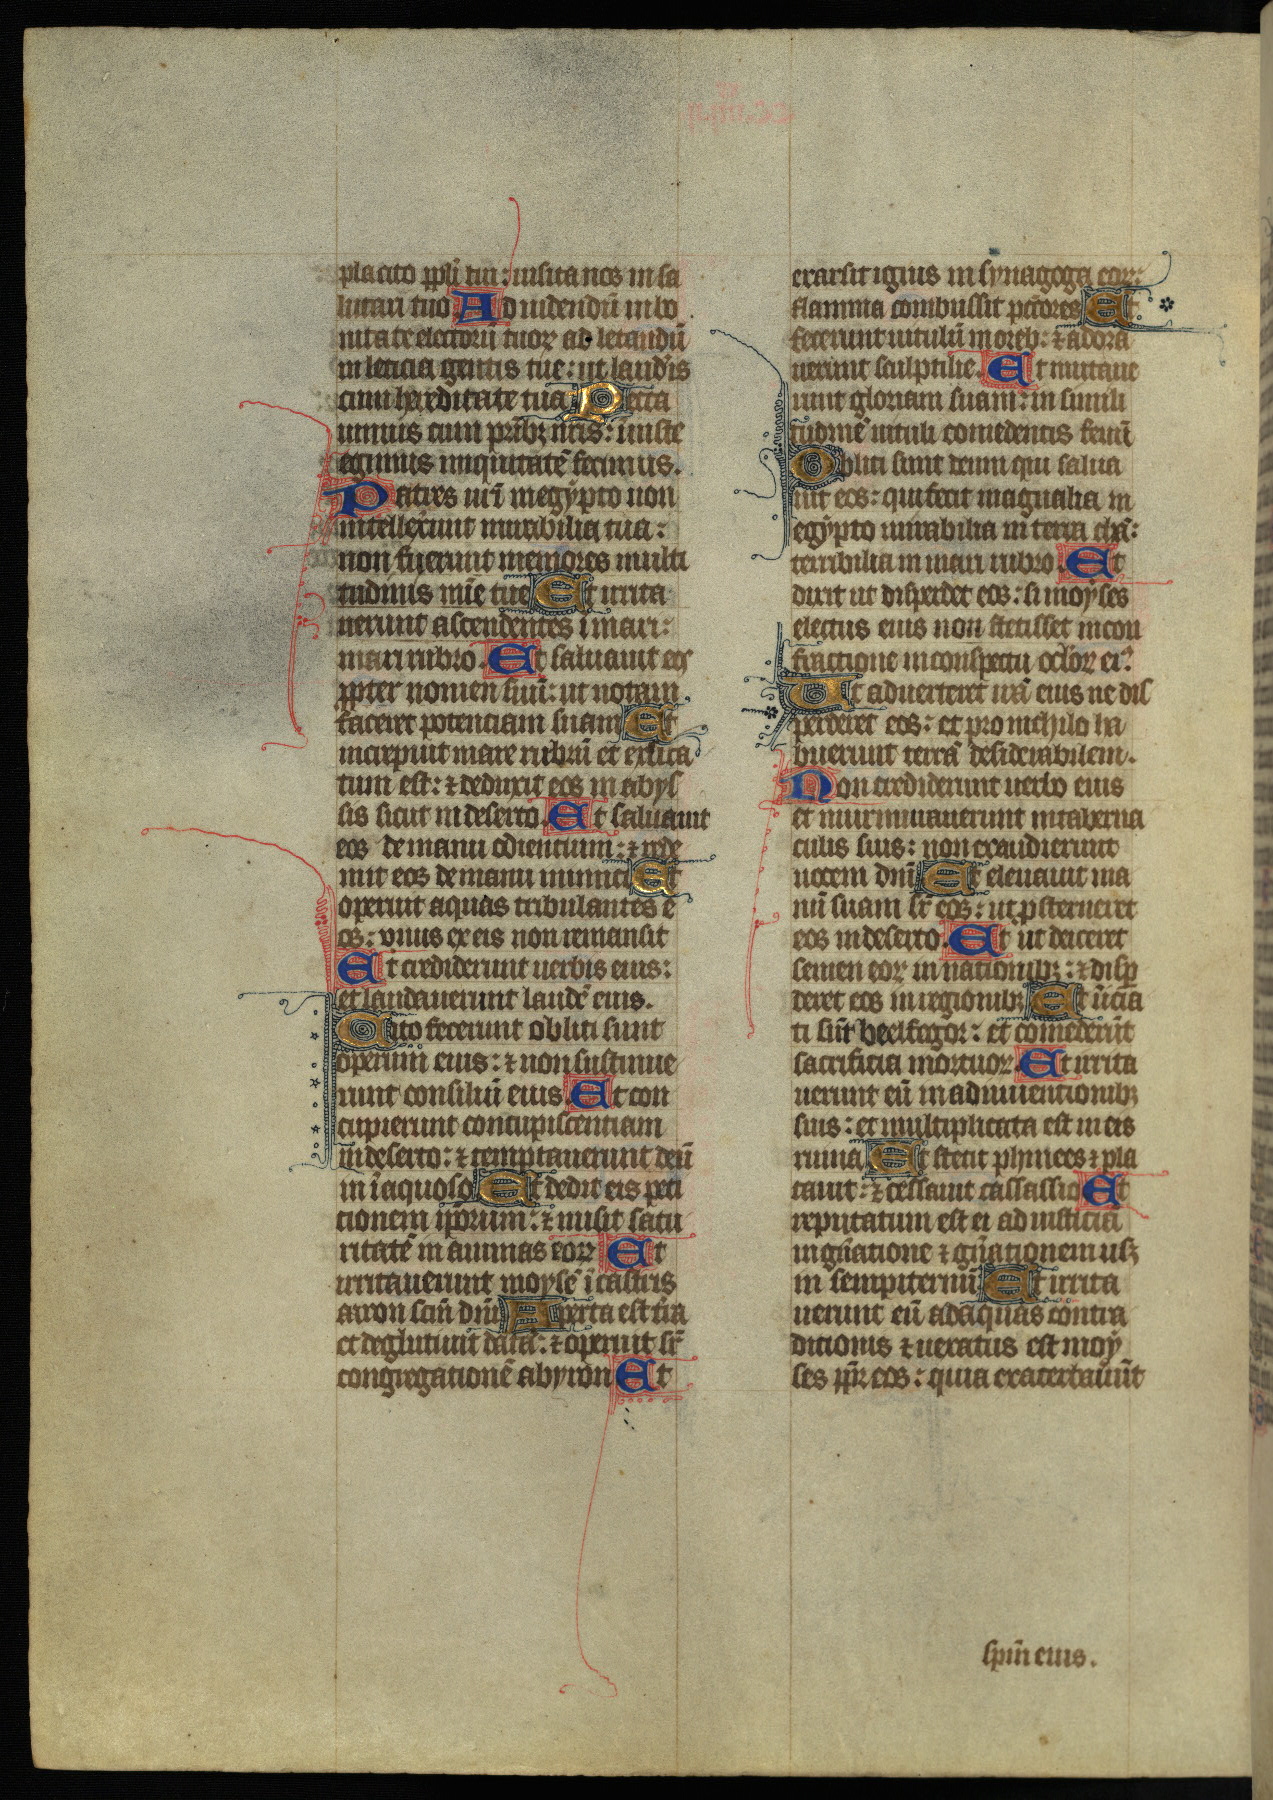 placito ppli tui: uisita nos in sa
lutari tuo Ad uidendū in bo
nitate electorū tuoꝝ ad letandū
in leticia gentis tue: ut laudˀis
cum hereditate tua Pecca
uimus cum pribꝫ nr̄is: iniuste
egimus iniquitatē fecimus.
Patres nr̄i in egypto non
intellexerunt mirabilia tua:
non fuerunt memores multi
tudinis mīe tue Et irrita
uerunt ascendentes ī mari:
mari rubro. Et saluauit eos
ppter nomen suū: ut notam
faceret potentiam suam Et
increpuit mare rubrū et exsicca
tum est: ⁊ deduxit eos in abys
sis sicut in deserto. Et saluauit
eos de manu odientium: ⁊ rede
mit eos de manu inimici Et
operuit aquas tribulantes e
os: vnus ex eis non remansit
Et crediderunt uerbis eius:
et laudauerunt laudē eius.
Cito fecerunt obliti sunt
operum eius: ⁊ non sustinue
runt consiliū eius Et con
cupierunt concupiscentiam
in deserto: ⁊ temptauerunt deū
in īaquoso Et dedit eis peti
tionem ip̄orum: ⁊ misit satu
ritatē in animas eoꝝ Et
irritauerunt moysē ī castris
aaron scm̄ dn̄i Aperta est t̄ra
et deglutiuit datā: ⁊ operuit sr̄
congregationē abyron Et
exarsit ignis in synagoga eoꝝ:
flamma combussit pctores Et
fecerunt uitulū in oreb: ⁊ adora
uerunt sculptile Et mutaue
runt gloriam suam: in simili
tudinē uituli comedentis fenū
Obliti sunt deum qui salua
uit eos: qui fecit magnalia in
egypto mirabilia in terra chā:
terribilia in mari rubro. Et
dixit ut disperdet eos: si moyses
electus eius non stetisset in con
fractione in conspectu ocloꝝ eiˀ:
Ut aduerteret irā eius ne dis
perderet eos: et pro nichilo ha
buerunt terrā desiderabilem.
Non crediderunt uerbo eius
et murmurauerunt in taberna
culis suis: non exaudierunt
uocem dn̄i Et eleuauit ma
nū suam sr̄ eos: ut psterneret
eos in deserto. Et ut deiceret
semen eoꝝ in nationibꝫ: ⁊ disp
deret eos in regionibꝫ Et īicia
ti sūt beelfegor: et comederūt
sacrificia mortuoꝝ Et irrita
uerunt eū in adinuentionibꝫ
suis: et multiplicata est in eis
ruina Et stetit phinees ⁊ pla
cauit: ⁊ cessauit cassassio Et
reputatum est ei ad iusticiā
in gn̄atione ⁊ gn̄ationem usꝫ
in sempiternū Et irrita
uerunt eū ad aquas contra
dictionis ⁊ uexatus est moy
ses ppr eos: quia exacerbauūt
spm̄ eius.